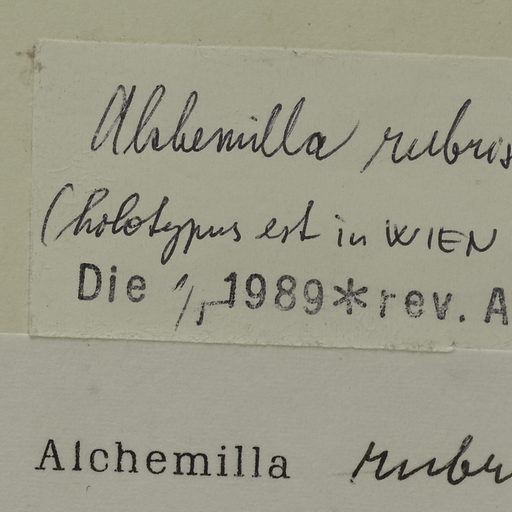 Alchemilla rubris
(holotypus est in WIEN
Die 1/5 1989*rev. A
Alchemilla rubr